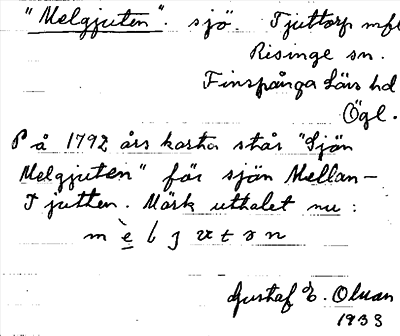 "Melgjuten". sjö. Tjuttorp mfl
Risinge sn.
Finspånga läns hd
Ögl.
På 1792 års karta står "Sjön
Melgjuten" för sjön Mellan-
Tjutten. Märk uttalet nu:
Gustaf E. Olsson
1933